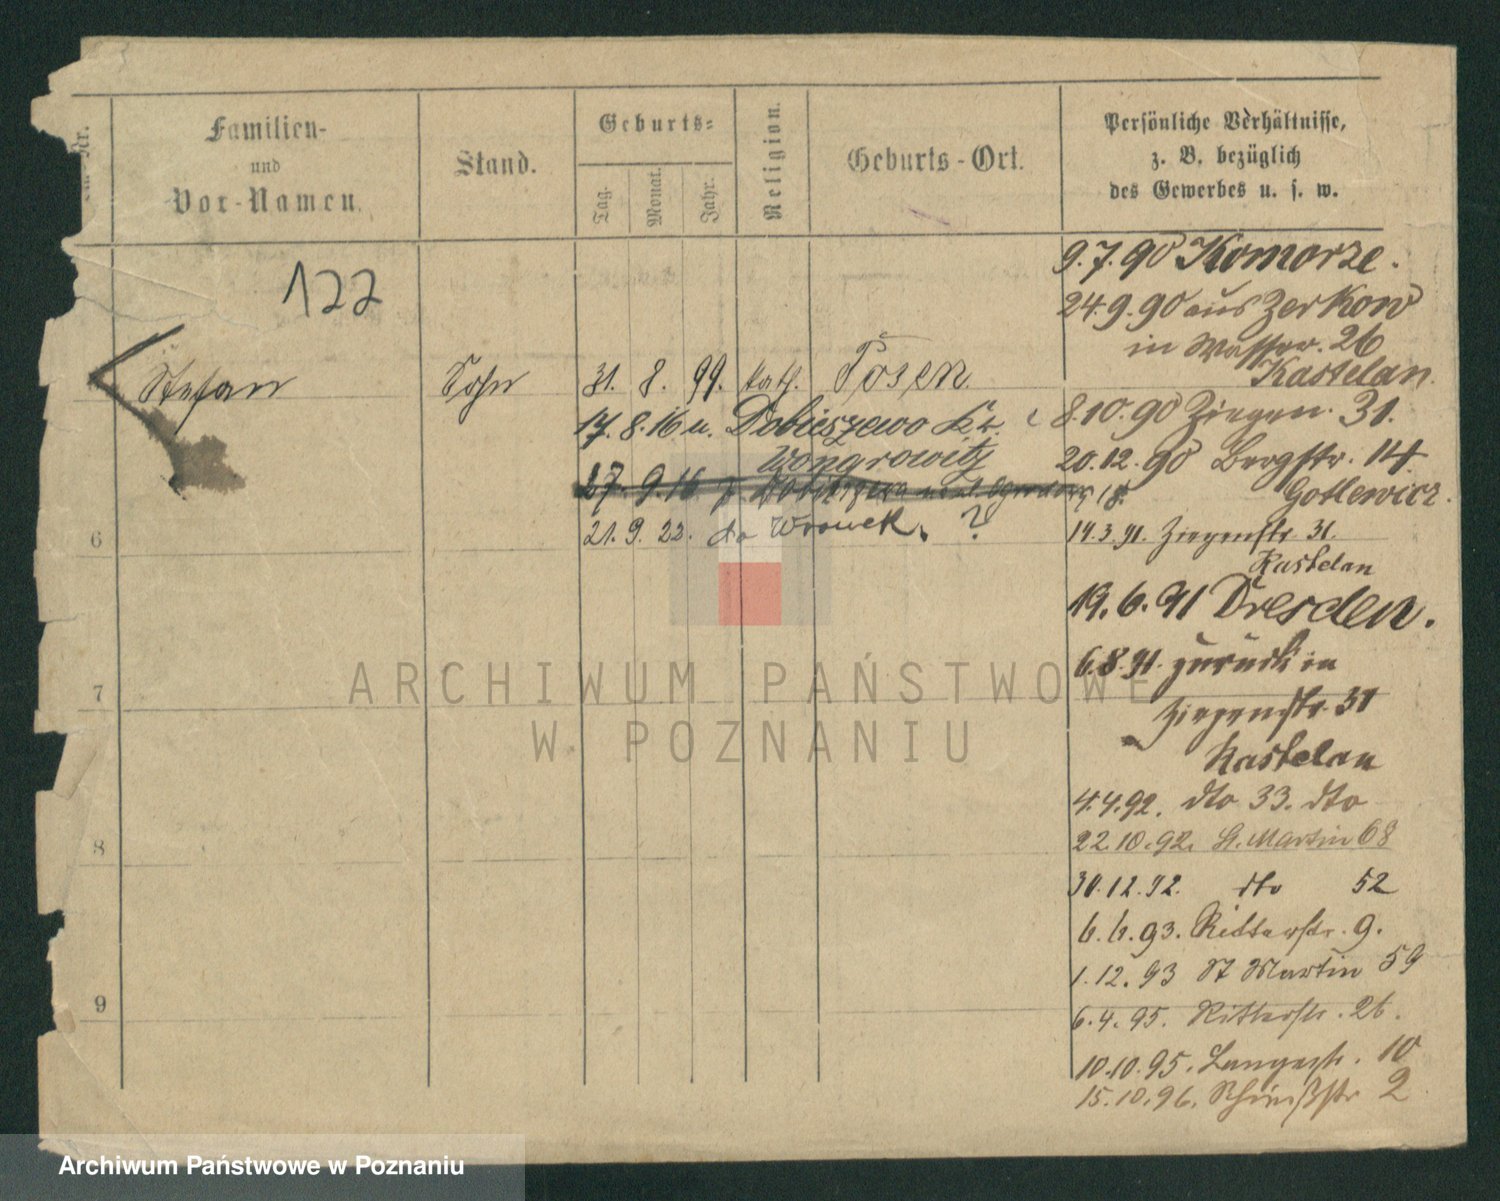 Nr.
Familien-
und
Vor-Namen.
Stand.
Geburts-
Tag.
Monat.
Jahr.
Religion.
Geburts-Ort.
Persönliche Verhältnisse,
z. B. bezüglich
des Gewerbes u. s. w.
122
Stefan Sohn 31. 8. 99. kath. Posen
17. 8. 16 u. Dobieszewo Kr.
Wongrowitz
27. 9. 16
21. 9. 22. do Wronek. ?
6
7
8
9
9.7.90 Komorze.
24.9.90 aus Zerkow
in Wasser. 26
Kastelan.
8.10.90 Ziegen. 31.
20.12.90 Bergstr. 14
Gotlewicz.
14.3.91. Ziegenstr. 31.
Kastelan
19.6.91 Dresden.
6.8.91. zurück in
Ziegenstr. 31
Kastelan
4.4.92. dto 33. dto
22.10.92. St. Martin 68
30.12.92. dto 52
6.6.93. Ritterstr. 9.
1.12.93 St Martin 59
6.4.95. Ritterstr. 26.
10.10.95. Langestr. 10
15.10.96. 2
ARCHIWUM PAŃSTWOWE
W POZNANIU
Archiwum Państwowe w Poznaniu